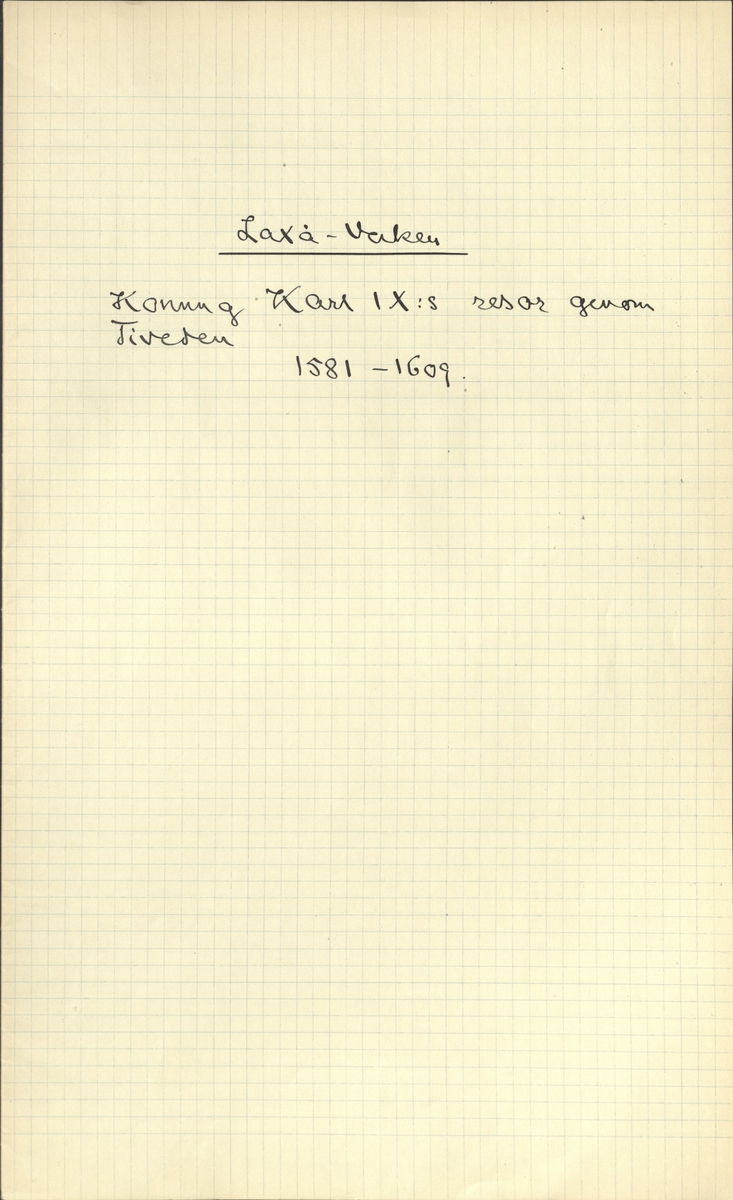 Laxå-Verken
Konung Karl IX:s resor genom
Tiveden
1581 – 1609.